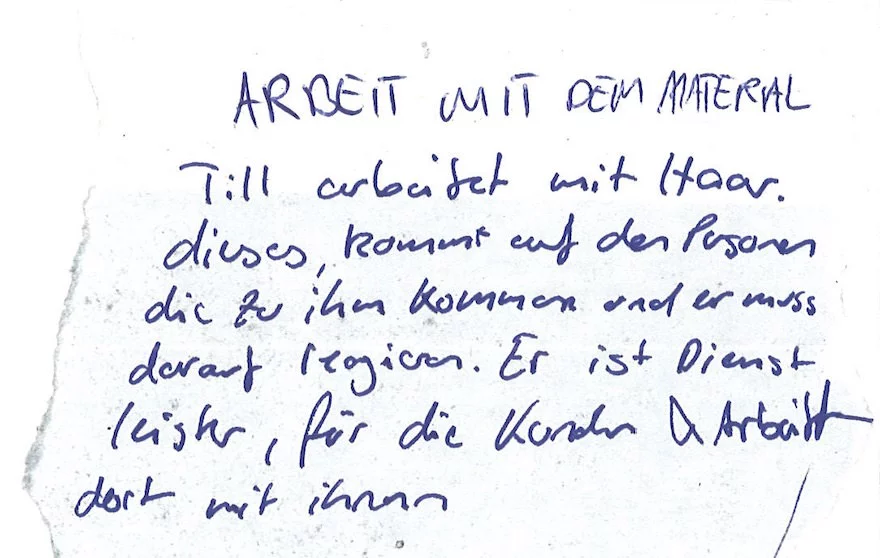 ARBEIT MIT DEM MATERIAL
Till arbeitet mit Haar.
dieses, kommt auf den Personen
die zu ihm kommen und er muss
darauf reagieren. Er ist Dienst
leister, für die Kunden & Arbeitet
dort mit ihnen